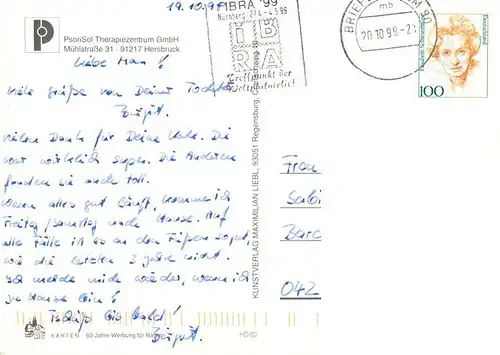 19.10.98
PsoriSol Therapiezentrum GmbH
Mühlstraße 31 - 91217 Hersbruck
Liebe
viele Grüße von Deiner Tochter
Birgit.
Vielen Dank für Deine Karte. Die
war wirklich super. Die Anderen
fanden sie auch toll.
Wenn alles gut läuft, komme ich
Freitag/Samstag nach Hause. Auf
alle Fälle ist es an den Füßen so gut,
wie die letzten 2 Jahre nicht.
Ich melde mich wieder, wenn ich
zu Hause bin!
Tschüß bis bald!
Birgit.
KARTEN 60 Jahre Werbung für Bayern
HD 60
KUNSTVERLAG MAXIMILIAN LIEBL, 93051 Regensburg,
IBRA '99
Nürnberg 27.4.-4.5.99
IB
RA
Treffpunkt der
Weltphilatelie!
BRIEFZENTRUM 90
mb
20.10.98-2
Deutschland
100
Frau
Sabi
Barc
042